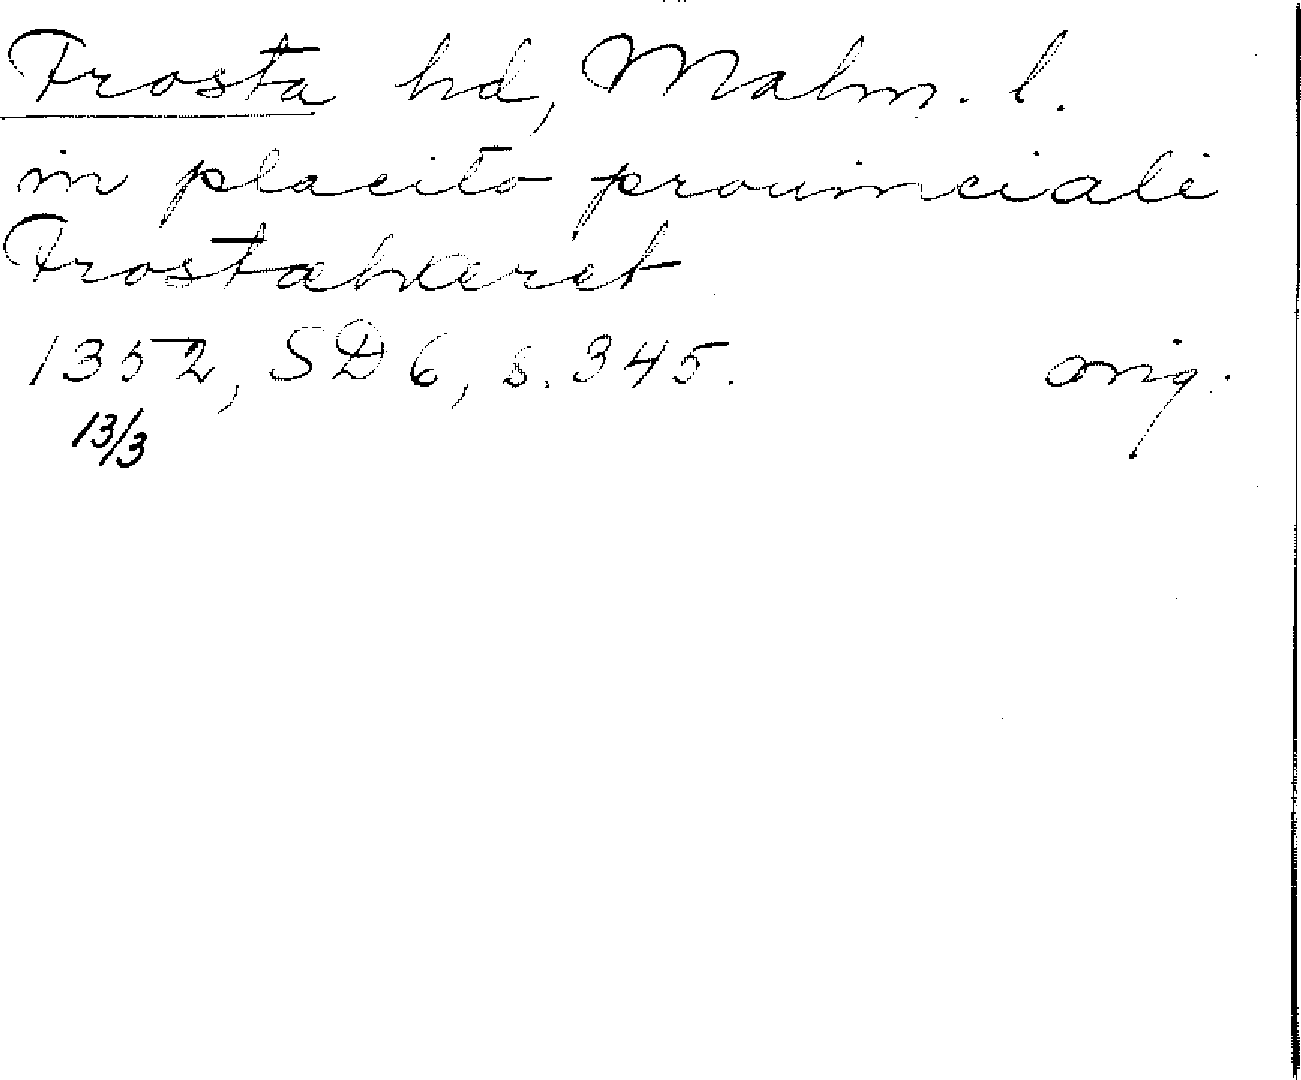 Frosta hd, Malm. l.
in placito prouinciali
Frostæhæret
1352, SD 6, s. 345. orig.
13/3